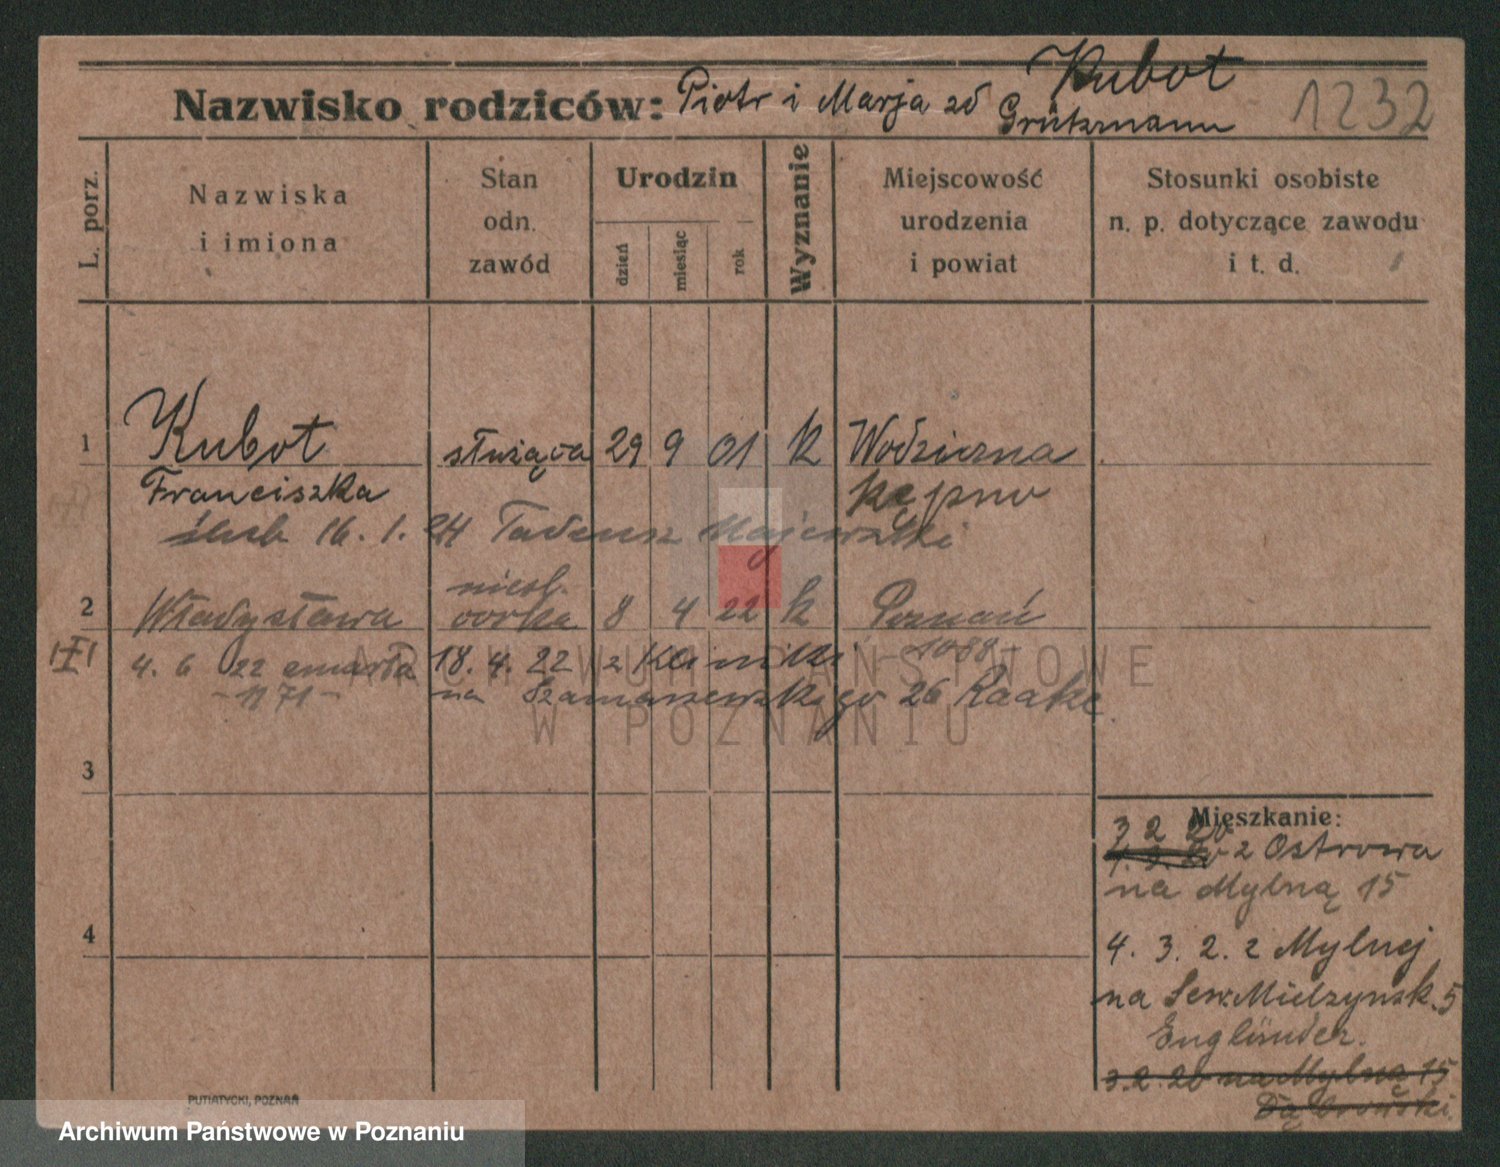 Kubot
Nazwisko rodziców: Piotr i Marja zd Grützmann 1232
L. porz.
Nazwiska
i imiona
Stan
odn.
zawód
Urodzin
dzień miesiąc rok
Wyznanie
Miejscowość
urodzenia
i powiat
Stosunki osobiste
n. p. dotyczące zawodu
i t. d.
1 Kubot służąca 29 9 01 k Wodziczna
Franciszka Kępno
ślub 16. 1. 24 Tadeusz Majewski
nieśl.
2 Władysława córka 8 4 22 k Poznań
4. 6 22 zmarła 18. 4. 22 z Kliniki -1088-
-1171- na Szamarzewskiego 26 Raake
ARCHIWUM PAŃSTWOWE
W POZNANIU
3
4
Mieszkanie:
3 2 20
z Ostrowa
na Mylną 15
4. 3. 2. z Mylnej
na Sew. Mielzynsk. 5
Engländer.
3.2.20 na Mylną 15
PUTIATYCKI, POZNAŃ
Archiwum Państwowe w Poznaniu